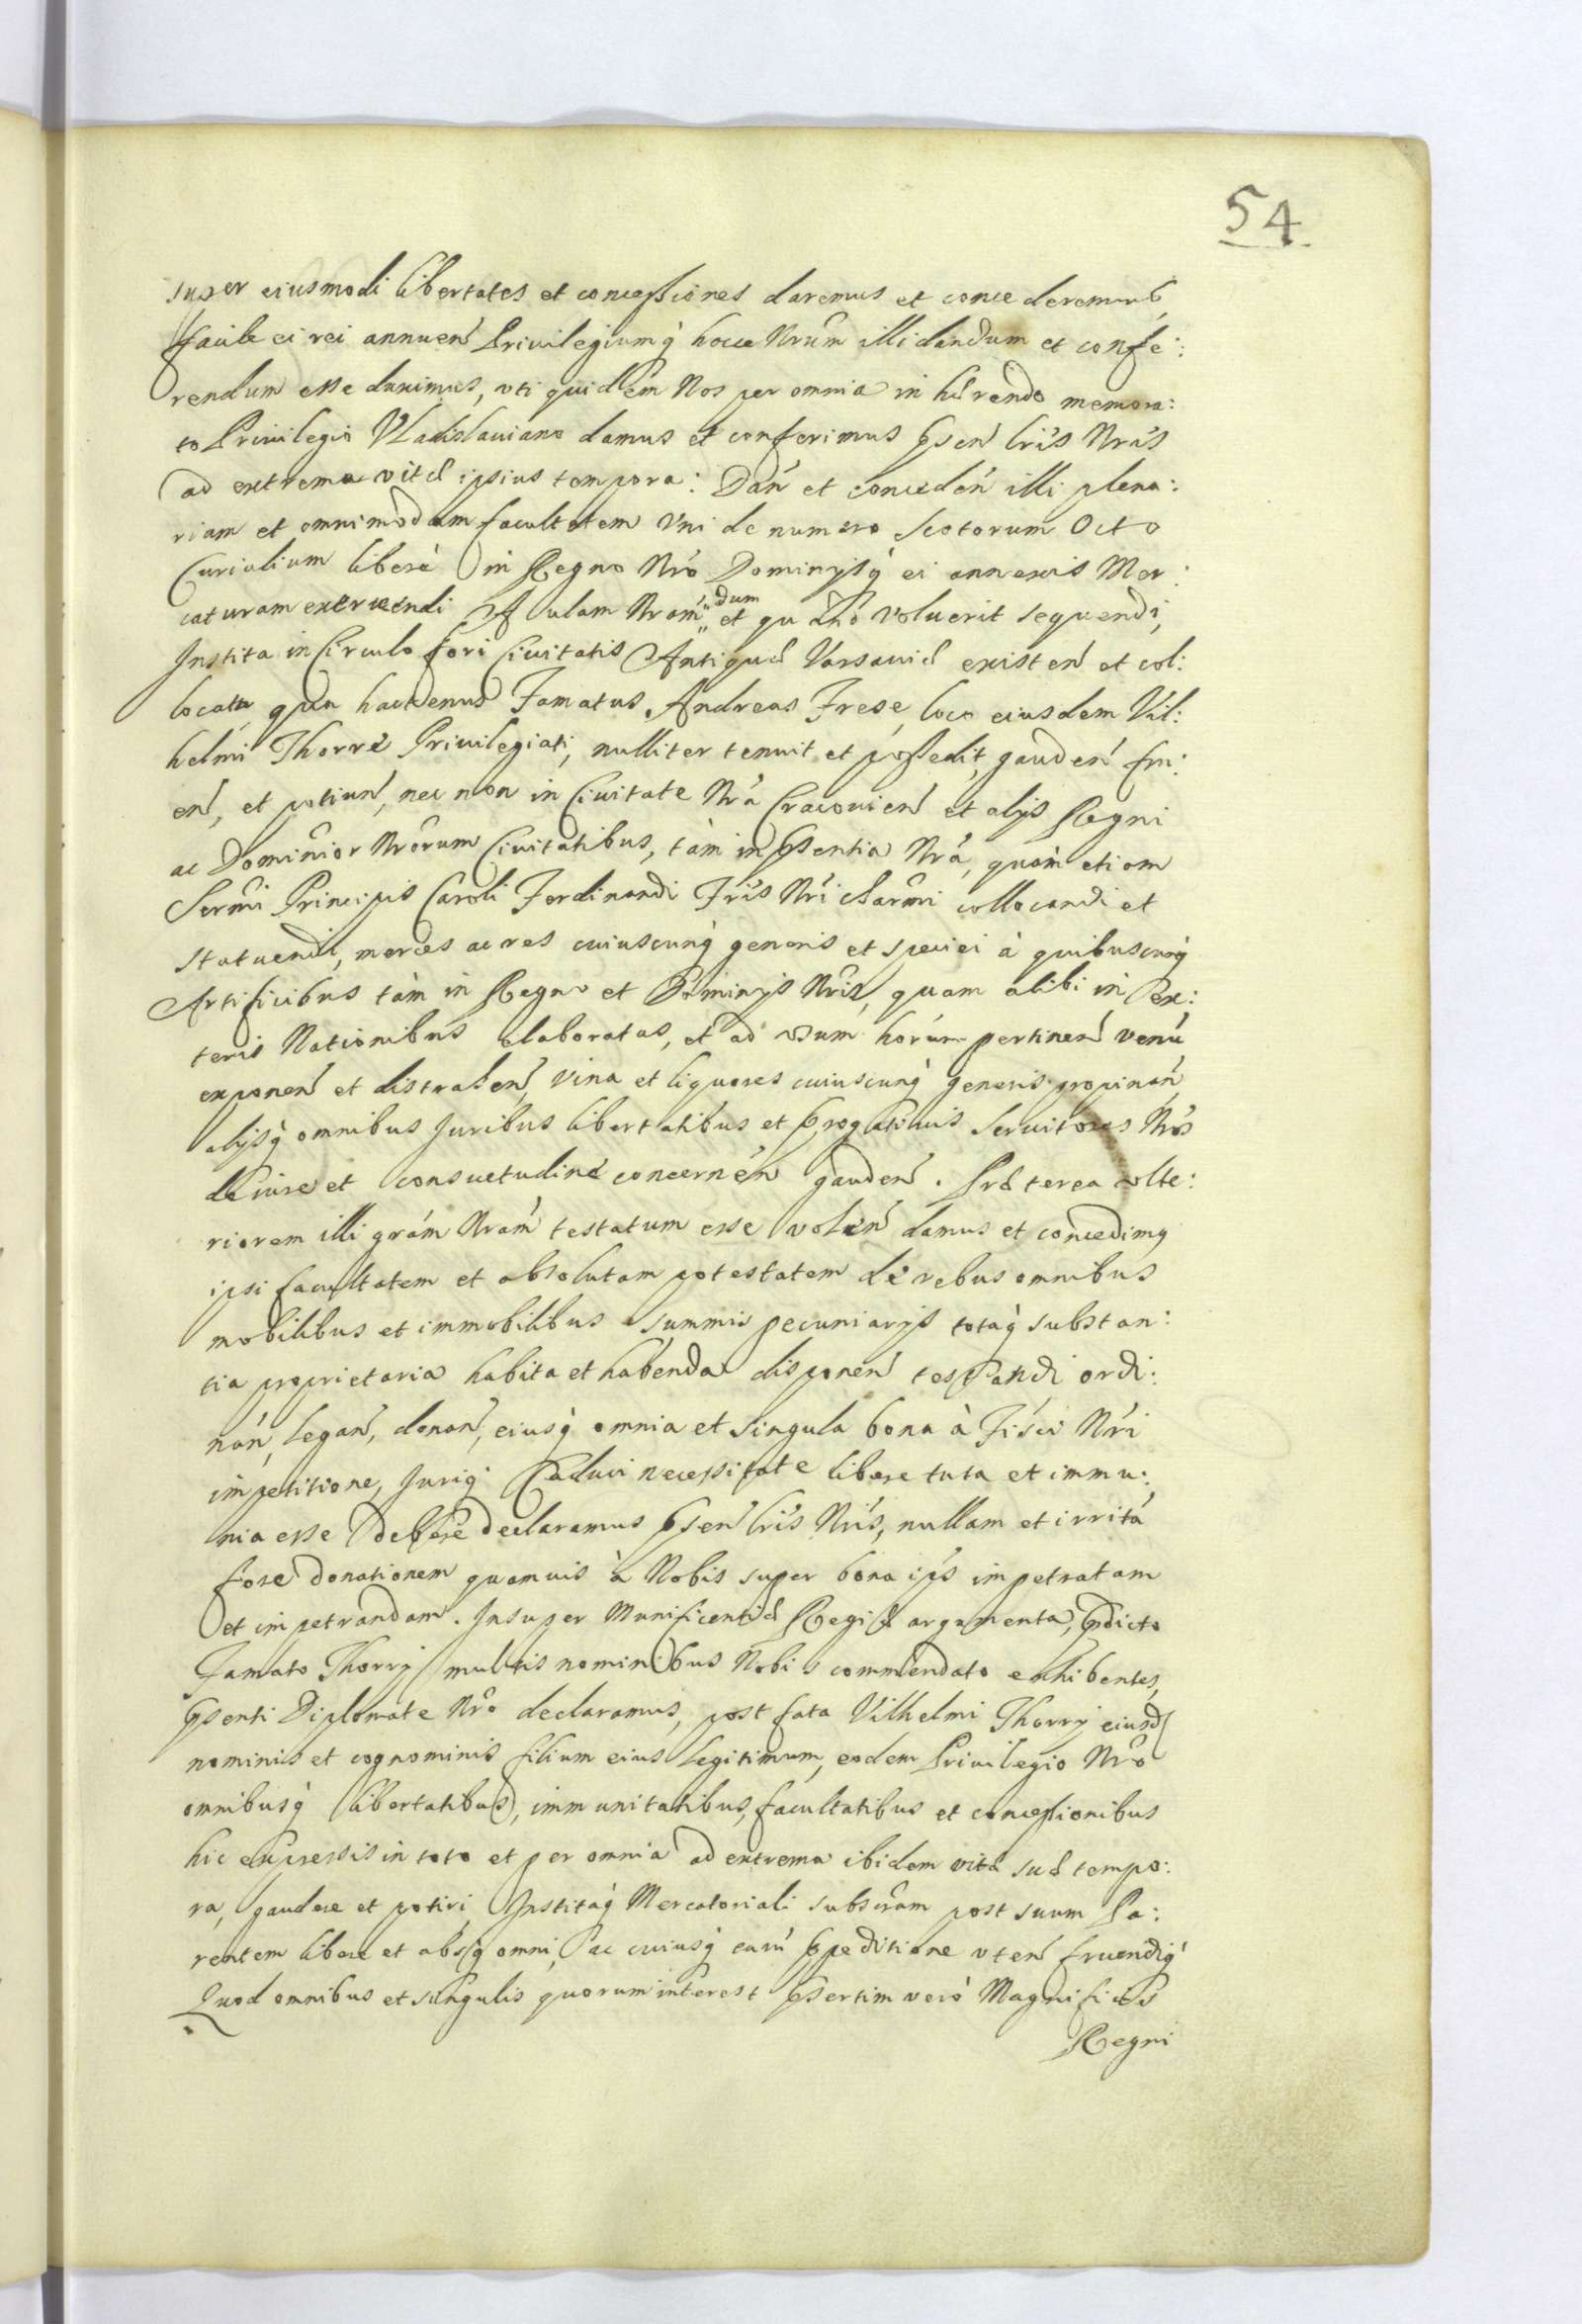 54
super eiusmodi libertates et concessiones daremus et concederemus,
facile ei rei annuen Privilegiumq́ hocce Nrum illi dandum et confe:
rendum esse duximus, vti quidem Nos per omnia in hærendo memora:
to Privilegio Vladislaviano damus et conferimus Psen lris Nras
ad extrema vitæ ipsius tempora: Dan et conceden illi plena:
riam et omnimodam facultatem Vni de numero Scotorum Octo
Curialium liberè in Regno Nro Dominijsq́ ei annexis Mer:
caturam exercendi Aulam Nram dum et quando voluerit sequendi,
Instita in Circulo fori Civitatis Antiquæ Varsaviæ existen et col:
locata, qua hactenus Famatus Andreas Frese loco eiusdem Vil:
helmi Thorre Privilegiati, nulliter tenuit et possedit, gauden fru:
en, et potiun, nec non in Civitate Nra Cracovien et alijs Regni
ac Dominior Nrorum Civitatibus, tàm in Psentia Nra, quàm etiam
Sermi Principis Caroli Ferdinandi Fris Nri charmi collocandi et
statuendi, merces ac res cuiuscunq́ generis et speciei à quibuscunq́
Artificibus tàm in Regno et Dominijs Nris, quam alibi in ex:
teris Nationibus elaboratas, et ad vsum horum pertinen venu
exponen et distrahen, Vina et liquores cuiuscunq́ generis propinan,
alijsq́ omnibus Juribus libertatibus et Progativis Servitores Nros
de iure et consuetudine concernen gauden. Præterea vlte:
riorem illi gram Nram testatum esse volen damus et concedimq
ipsi facultatem et absolutam potestatem de rebus omnibus
mobilibus et immobilibus summis pecuniarijs totaq́ substan:
tia proprietaria habita et habenda disponen testandi ordi:
nan, legan, donan, eiusq́ omnia et singula bona à Fisci Nri
impetitione, Jurisq́ Caduci necessitate libere tuta et immu:
nia esse debere declaramus Psen lris Nris, nullam et irrita
fore donationem quamvis à Nobis super bona ips impetratam
et impetrandam. Insuper Munificentiæ Regiæ argumenta, Pdicto
Famato Thorry multis nominibus Nobis commendato exhibentes,
Psenti Diplomate Nro declaramus, post fata Vilhelmi Thorry eiusd
nominis et cognominis filium eius legitimum, eodem Privilegio Nro
omnibusq́ libertatibus, immunitatibus, facultatibus et concessionibus
hic expressis in toto et per omnia ad extrema ibidem vitæ suæ tempo:
ra, gaudere et potiri, Institaq́ Mercatoriali subscram post suum Pa:
rentem libere et absq́ omni, ac cuiusq́ earu Ppeditione vten fruendiq́
Quod omnibus et singulis quorum interest Psertim verò Magnificis
Regni